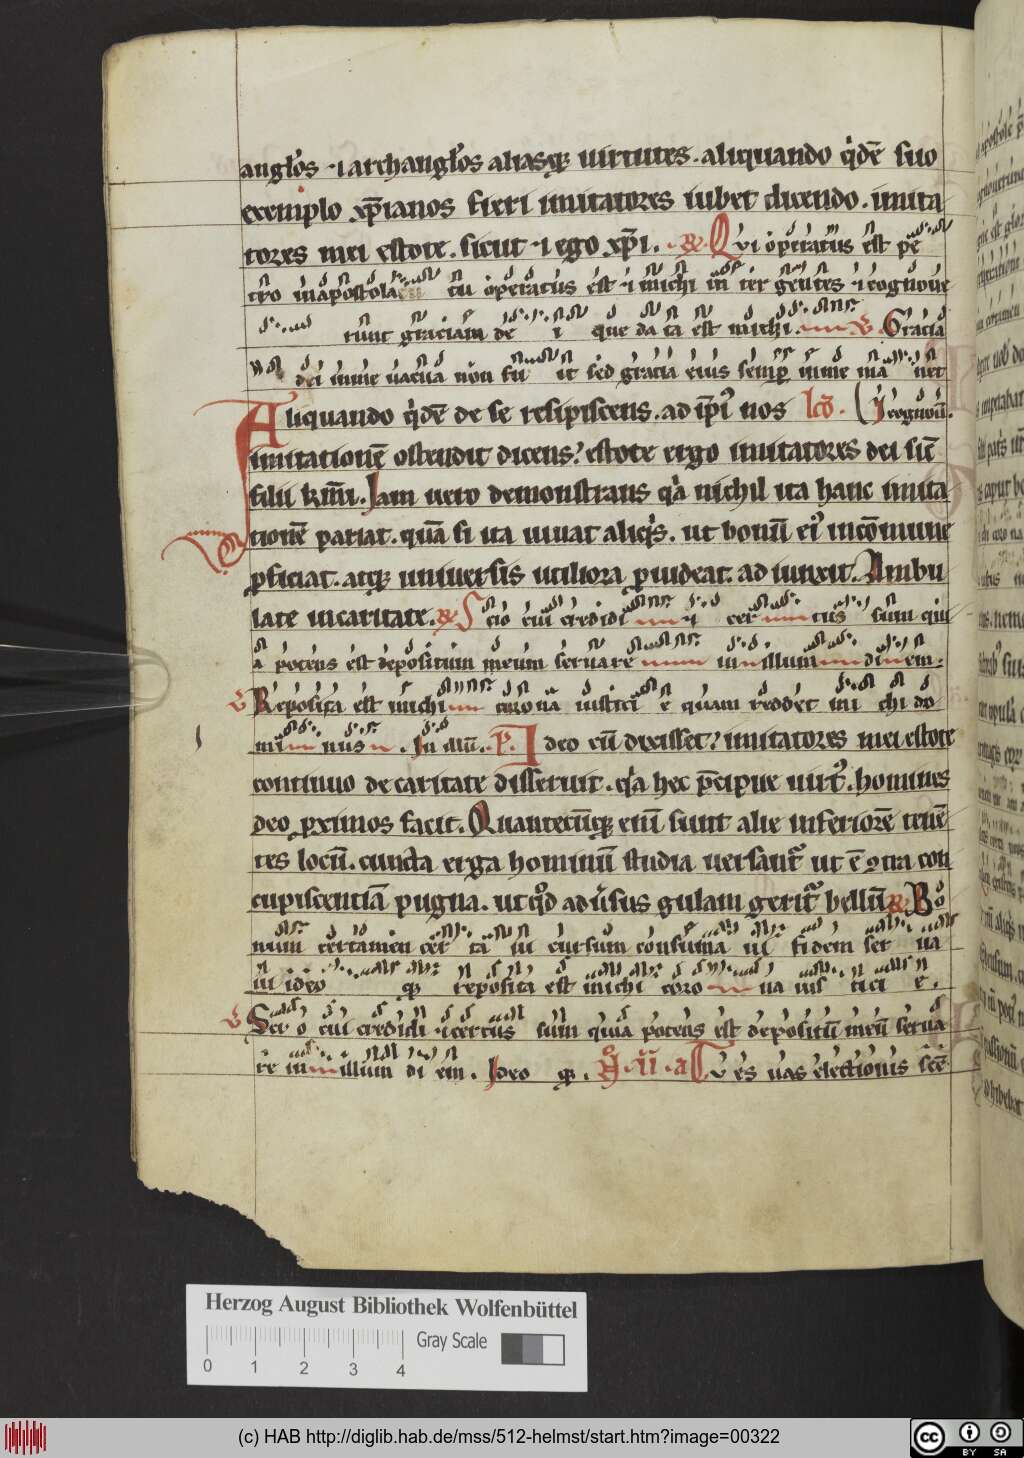 anglos ⁊ archanglos aliasq; uirtutes. aliquando q̇dē suo
exemplo xp̄ianos fieri imitatores iubet dicendo. imita
tores mei estote. sicut ⁊ ego xp̄i. Qui operatus est pe
tro in apostola tu operatus est ⁊ michi in ter gentes ⁊ cognoue
runt graciam de i que da ta est michi. V Gracia
dei in me uacua non fu it sed gracia eius semp in me ma net
Aliquando q̇dē de se resipiscens. ad ip̄i nos lcō. ⁊ cognouē.
imitationē ostendit dicens? estote ergo imitatores dei sic̄
filii km̄i. Iam uero demonstrans q̇a nichil ita hanc imita
tionē pariat. quā si ita uiuat aliq̇s. ut bonū ei' in cōmune
pficiat. atq; uniuersis utiliora puideat. ad iunxit. Ambu
late in caritate. R Scio cui credidi ⁊ cer tus sum qui
a potens est depositum meum seruare in illum diem.
V Reposita est michi corona iusticie quam reddet mi chi do
mi nus. In illū. P. Ideo cū dixisset? imitatores mei estote
continuo de caritate disseruit. q̇a hec p̄cipue uirt'. homines
deo pximos facit. Quantecūq; enī sunt alie inferiorē tenē
tes locū. cuncta erga hominū studia uersant' ut ē 9tra con
cupiscentiā pugna. ut qd' aduersus gulam gerit' bellū R Bo
num certamen cer ta ui cursum consuma ui fidem ser ua
ui ideo q; reposita est michi coro na ius tici e.
V Sci o cui credidi ⁊ certus sum quia potens est depositū meū serua
re in illum di em. Ideo q;. A. Tu es uas electionis scē
Herzog August Bibliothek Wolfenbüttel
Gray Scale
0 1 2 3 4
(c) HAB http://diglib.hab.de/mss/512-helmst/start.htm?image=00322
cc BY SA